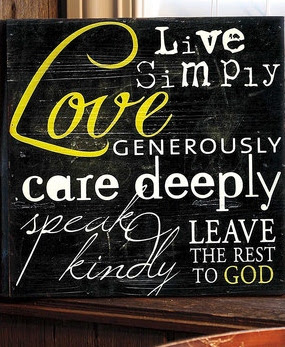 Live
Simply
Love
GENEROUSLY
care deeply
speak
kindly
LEAVE
THE REST
TO GOD